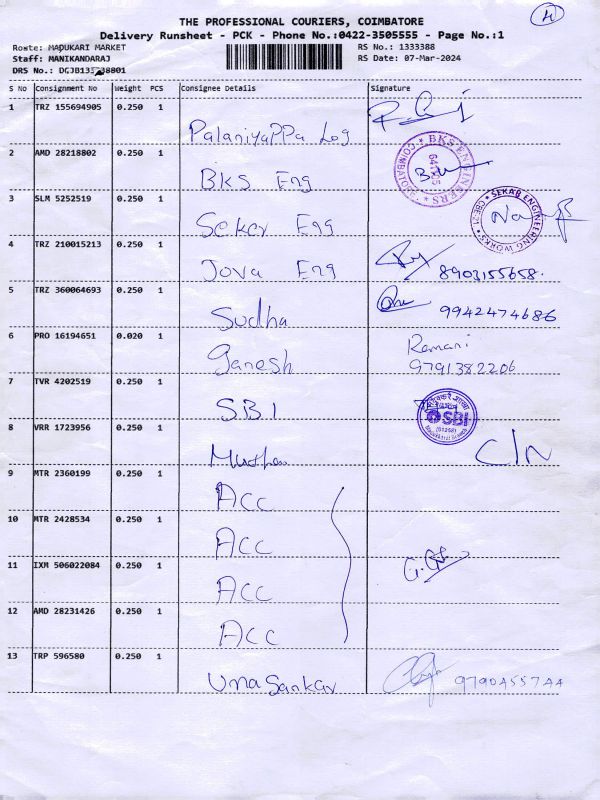 4
THE PROFESSIONAL COURIERS, COIMBATORE
Delivery Runsheet - PCK - Phone No.:0422-3505555 - Page No.:1
Route: MADUKARI MARKET RS No.: 1333388
Staff: MANIKANDARAJ RS Date: 07-Mar-2024
DRS No.:
S No Consignment No Weight PCS Consignee Details Signature
1 TRZ 155694905 0.250 1
PalaniyaPPa Log
2 AMD 28218802 0.250 1
BKS Eng
BKS ENGINEERS
COIMBATORE
3 SLM 5252519 0.250 1
Seker Eng
SEKAR ENGINEERING WORKS
4 TRZ 210015213 0.250 1
Jova Eng 8903155658.
5 TRZ 360064693 0.250 1
Sudha 9942474686
6 PRO 16194651 0.020 1
Ganesh Ramani
9791382206
7 TVR 4202519 0.250 1
S.B.I
SBI
8 VRR 1723956 0.250 1
C/N
9 MTR 2360199 0.250 1
ACC
10 MTR 2428534 0.250 1
ACC
11 IXM 506022084 0.250 1
ACC
12 AMD 28231426 0.250 1
ACC
13 TRP 596580 0.250 1
Uma Sankar 9790455744